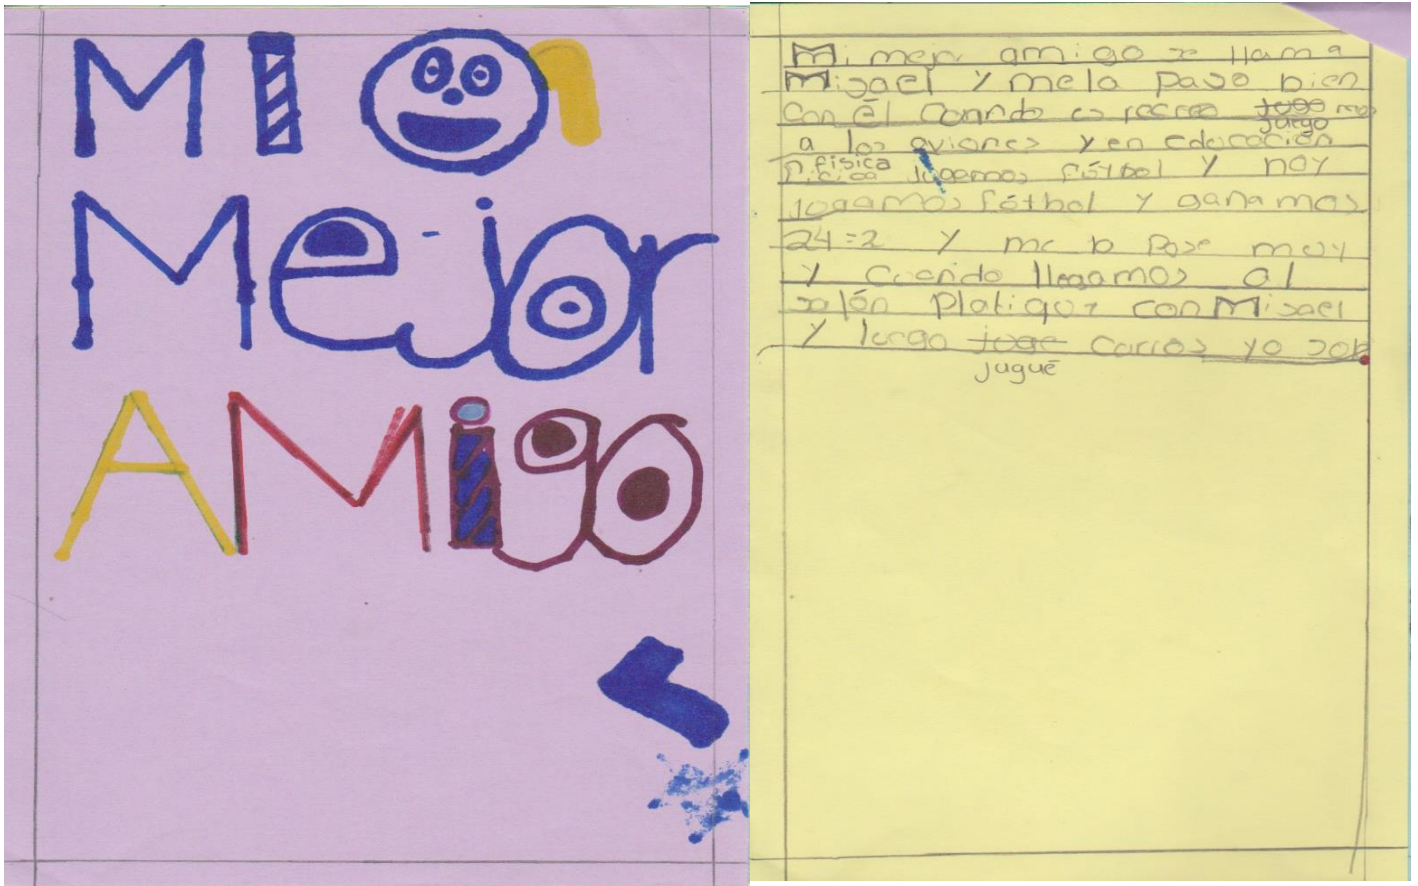 MI
Mejor
AMigo
Mi mejor amigo se llama
Misael y me la paso bien
con Él cuando es recreo juge mos
juego
a los aviones y en educación
física
fisica jugamos fútbol y hoy
jugamos fútbol y ganamos
24=2 y me la pase muy
y cuando llegamos al
salón platique con Misael
y luego juge carros yo sol
jugué